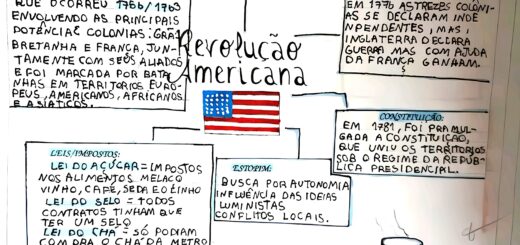 QUE OCORREU 1756/1763
ENVOLVENDO AS PRINCIPAIS
POTÊNCIAS COLONIAS: GRÃ
BRETANHA E FRANÇA, JUN-
TAMENTE COM SEUS ALIADOS
E FOI MARCADA POR BATA
NHAS EM TERRITORIOS EURO-
PEUS, AMERICANOS, AFRICANOS
E ASIATICOS.
Revolução
Americana
EM 1776 AS TREZE COLÔNI-
AS SE DECLARAM INDE
NPENDENTES, MAS,
INGLATERRA DECLARA
GUERRA MAS COM AJUDA
DA FRANÇA GANHAM.
CONSTITUIÇÃO:
EM 1781, FOI PRAMUL-
GADA A CONSTITUICAO,
QUE UNIU OS TERRITORIOS
SOB O REGIME DA REPUB-
LICA PRESIDENCIAL.
LEIS/IMPOSTOS:
LEI DO AÇUCAR = IMPOSTOS
NOS ALIMENTOS MELAÇO
VINHO, CAFÉ, SEDA E O LINHO
LEI DO SELO = TODOS
CONTRATOS TINHAM QUE
TER UM SELO
LEI DO CHA = SÓ PODIAM
COMPRA O CHA DA METRO
ESTOPIM:
BUSCA POR AUTONOMIA
INFLUÊNCIA DAS IDEIAS
LUMINISTAS
CONFLITOS LOCAIS.